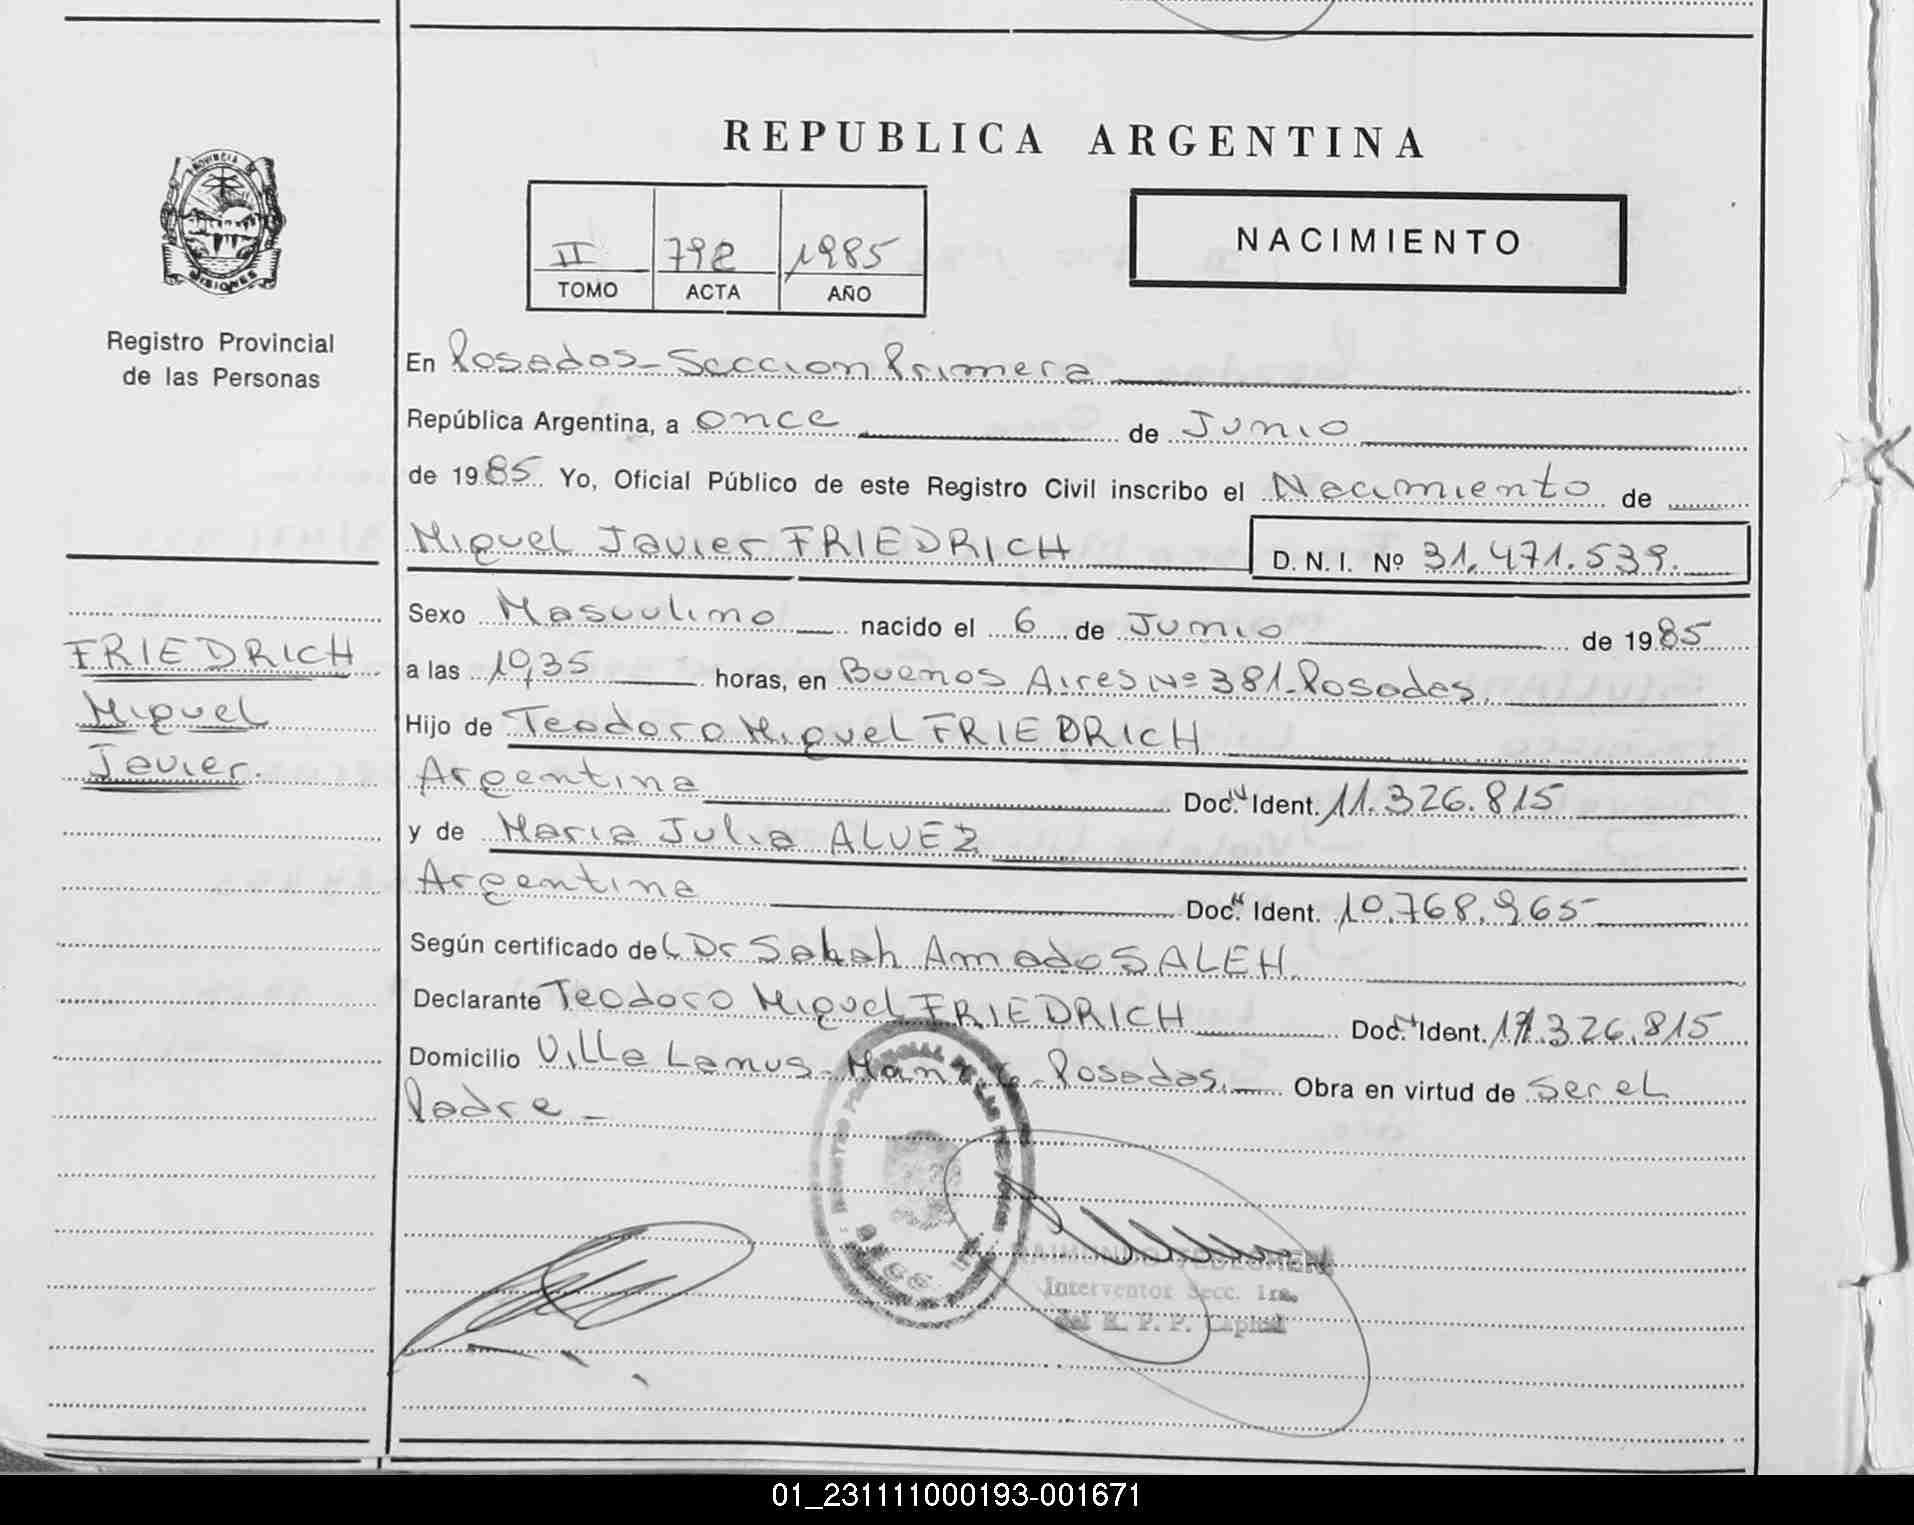 PROVINCIA
MISIONES
Registro Provincial
de las Personas
FRIEDRICH
Miguel
Javier.
REPUBLICA ARGENTINA
II 792 1985
TOMO ACTA AÑO
NACIMIENTO
En Posadas - Seccion Primera
República Argentina, a once de Junio
de 1985 Yo, Oficial Público de este Registro Civil inscribo el Nacimiento de
Miguel Javier FRIEDRICH D. N. I. Nº 31.471.539.
Sexo Masculino nacido el 6 de Junio de 1985
a las 19,35 horas, en Buenos Aires Nº 381 - Posadas.
Hijo de Teodoro Miguel FRIEDRICH
Argentina Doc. N Ident. 11.326.815
y de Maria Julia ALVEZ
Argentina Doc. N Ident. 10.768.965
Según certificado del Dr Sabah Amado SALEH.
Declarante Teodoro Miguel FRIEDRICH Doc. N Ident. 11.326.815
Domicilio Villa Lanus - Manz. - Posadas. Obra en virtud de ser el
Padre -
Interventor Secc. 1ra.
del R. P. P. Capital
01_231111000193-001671